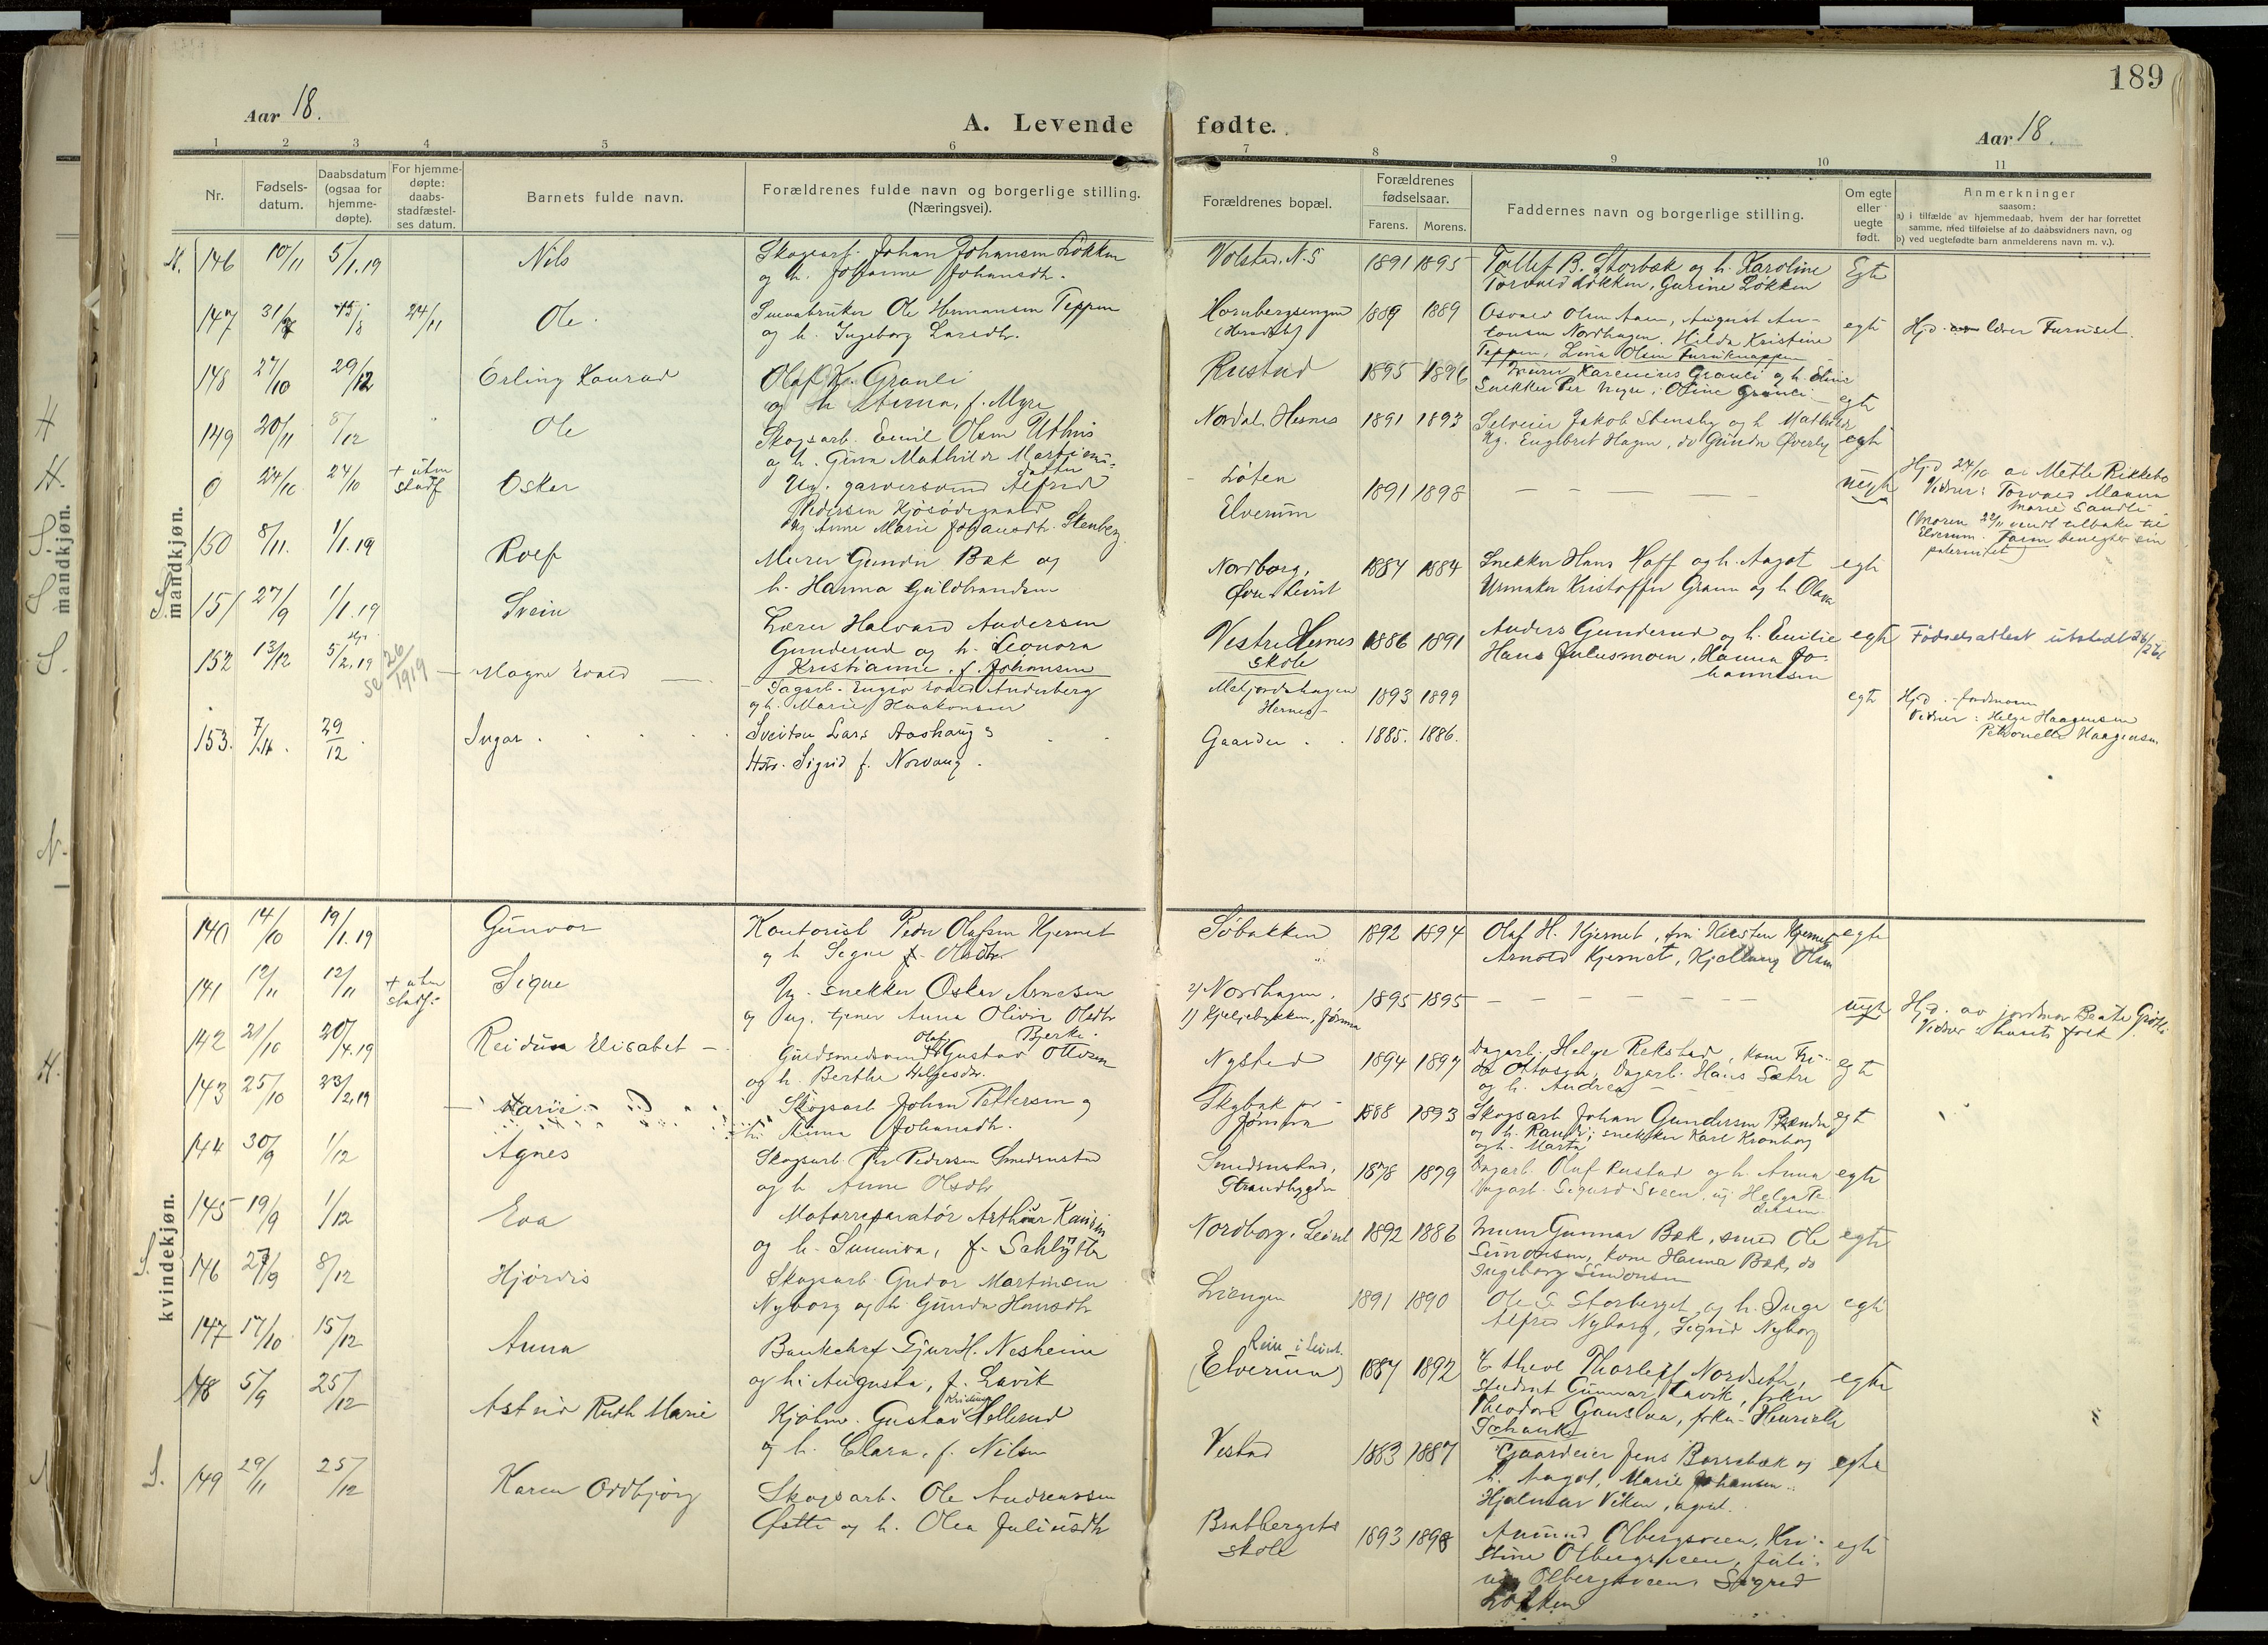 189
Aar 18.
A. Levende fødte.
Aar 18.
1 2 3 4 5 6 7 8 9 10 11
Nr.
Fødsels-
datum.
Daabsdatum
(ogsaa for
hjemme-
døpte).
For hjemme-
døpte:
daabs-
stadfæstel-
ses datum.
Barnets fulde navn.
Forældrenes fulde navn og borgerlige stilling.
(Næringsvei).
Forældrenes bopæl.
Forældrenes
fødselsaar.
Farens. Morens.
Faddernes navn og borgerlige stilling.
Om egte
eller
uegte
født.
Anmerkninger
saasom:
a) i tilfælde av hjemmedaab, hvem der har forrettet
samme, med tilføielse af to daabsvidners navn, og
b) ved uegtefødte barn anmelderens navn m. v.).
mandkjøn.
146 10/11 5/1.19 Nils
Skogsarb. Johan Johansen Løkken
og h. Johanne Johansdtr.
Volstad. N. S 1891 1895
Tollef B. Storbæk og h. Karoline
Torvald Løkken, Gurine Løkken
Egte
147 31/7 15/8 24/11 Ole.
Ole Hermansen Teppen
og h. Ingeborg Larsdtr.
Hornbergsengen 1889 1889
Osvald Olsen Aaen, August An-
tonsen Nordhagen. Hilda Kristine
Teppen, Lina Olsen Furuknappen
egte
Hjd. lærer Furuset.
148 27/10 29/12 Erling Konrad
Olaf Kr. Granli
og h. f. Myre
Rustad 1895 1896
Karenius Granli og h. Eline
Snekker Per Myre, Oline Granli
egte
149 20/11 8/12 Ole
Skogsarb. Emil Olsen Uthus
og h. Gina Mathilde Martins-
datter
Nordal, Hernes 1891 1893
Selveier Jakob Stensby og h. Mathilde
Ug. Engebret Hagen, do Gunda Øverby
egte
0 24/10 24/10 + uten
stadf
Oskar
Ug. garversvend Alfred
Pedersen Kjøsødegaard
Ug Anne Marie Johansdtr. Stenberg
Løten
Elverum
1891 1898
uegte
Hjd 24/10 av Mette Rikkebo
Vidner: Torvald Maana
Marie Sandli
(Moren 22/11 vendt tilbake til
Elverum. Faren benegter sin
paternitet)
150 8/11. 1/1.19 Rolf
Murer Gunder Bæk og
h. Hanna Guldbrandsen
Nordborg,
Øvre Leiret
1884 1884
Snekker Hans Hoff og h. Aagot
Urmaker Kristoffer Graen og h. Olava
egte
151 27/9 1/1.19 Svein
Lærer Halvard Andersen
Gunderud og h. Leonora
Kristianne, f. Johansen
Vestre Hernes
skole
1886 1891
Anders Gunderud og h. Emilie
Hans Juliusmoen, Hanna Jo-
hannesen
egte
Fødselsattest utstedt
152 13/12 5/2.19 26/1919
Magne Evald
Sagarb. Evald Anderberg
og h. Marie Haakonsen
Hernes
1893 1899
egte
Hjd. jordmoren
Vidner: Helge Haagensen
Petronelle Haagensen
153. 7/11. 29/12. Ingar
Sveitser Lars Aashaug
Htr. Sigrid f. Norvang.
Gaarder 1885. 1886.
kvindekjøn.
140 14/10 19/1.19 Gunvor
Kontorist Peder Olafsen Kjernet
og h Segne Olsdtr.
Søbakken 1892 1894
Olaf H. Kjernet, fru Kirsten Kjernet
Arnold Kjernet, Kjellaug Olsen
egte
141 12/11 12/11 + uten
stadf.
Signe
Ug. snekker Oskar Arnesen
og ug. tjener Anna Olivia Olsdtr
Bjerke.
2) Nordhagen,
1) Kjeljebykken, Jømna
1895 1895
uegte
Hjd. av jordmor Beate Grøtli
Vidner: husets folk.
142 21/10 20/4.19 Reidun Elisabet
Guldsmedsvend Olaf Gustav Ottesen
og h. Berthe Helgesdtr.
Nysted 1894 1897
Dagarb. Helge Rekstad, kone Fri-
da Ottosen, Dagarb. Hans Sætre
og h. Andrea
egte
143 25/10 23/2.19 Marie
Skogsarb Johan Pettersen og
h. Anna Johansdtr.
Skybak pr
Jømna
1888 1893
Skogsarb Johan Gundersen
og h. Randi; snekker Karl Kronborg
og h. Marta
egte
144 30/9 1/12 Agnes
Skogsarb. Per Pedersen Smedsrustad
og h. Anne Olsdtr
Smedsrustad,
Strandbygden
1878 1879
Dagarb. Olaf Rustad og h. Anna
Dagarb. Sigurd Sveen, ug. Helga Pe-
dersen
egte
145 19/9 1/12 Eva
Motorreparatør Arthur
og h. Sunniva, f. Schlytter
Nordborg, Leiret 1892 1886
Murer Gunnar Bæk, smed Ole
Simonsen, kone Hanna Bæk, do
Ingeborg Simonsen
egte
146 27/9 8/12 Hjørdis
Skogsarb. Gudor Martinsen
Nyborg og h. Gunda Hansdtr
1891 1890
Ole S. Storberget og h. Inga
Alfred Nyborg, Sigrid Nyborg
egte
147 17/10 15/12 Anna
Bankchef Gjur H. Nesheim
og h. Augusta, f. Lavik
Leiret.
(Elverum)
1887 1892
Thorleif Nordseth,
Student Gunnar Lavik, frkn
Theodora, frkn. Henriette
Schanke
egte
148 5/9 25/12 Astrid Ruth Marie
Kjøbm. Gustav Hellerud
og h. Clara, f. Nilsen
Vestad 1883 1887
Gaardeier Jens Barrebæk og
h. Aagot, Marie Johansen
Hjalmar Viken, agent.
egte
149 29/11 25/12 Karen Oddbjørg
Skogsarb. Ole Andreassen
og h. Olea Juliusdtr
Bratbergets
skole
1893 1898
Amund Olbergsveen, Kri-
stine Olbergsveen, Juli-
us Olbergsveen, Sigrid
Løkken
egte